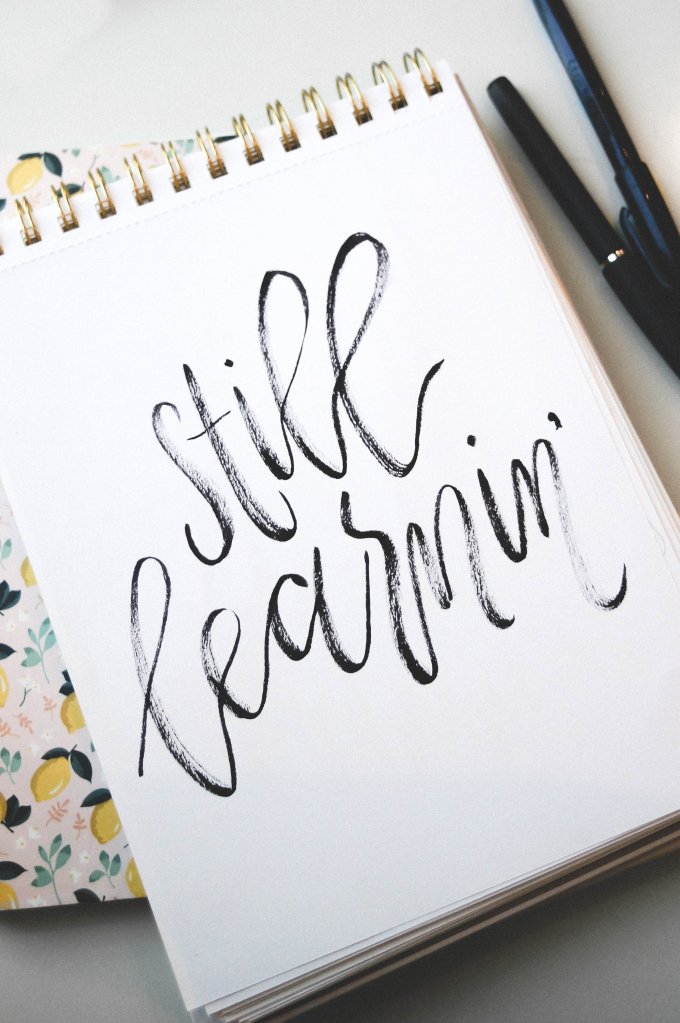 still
learnin'